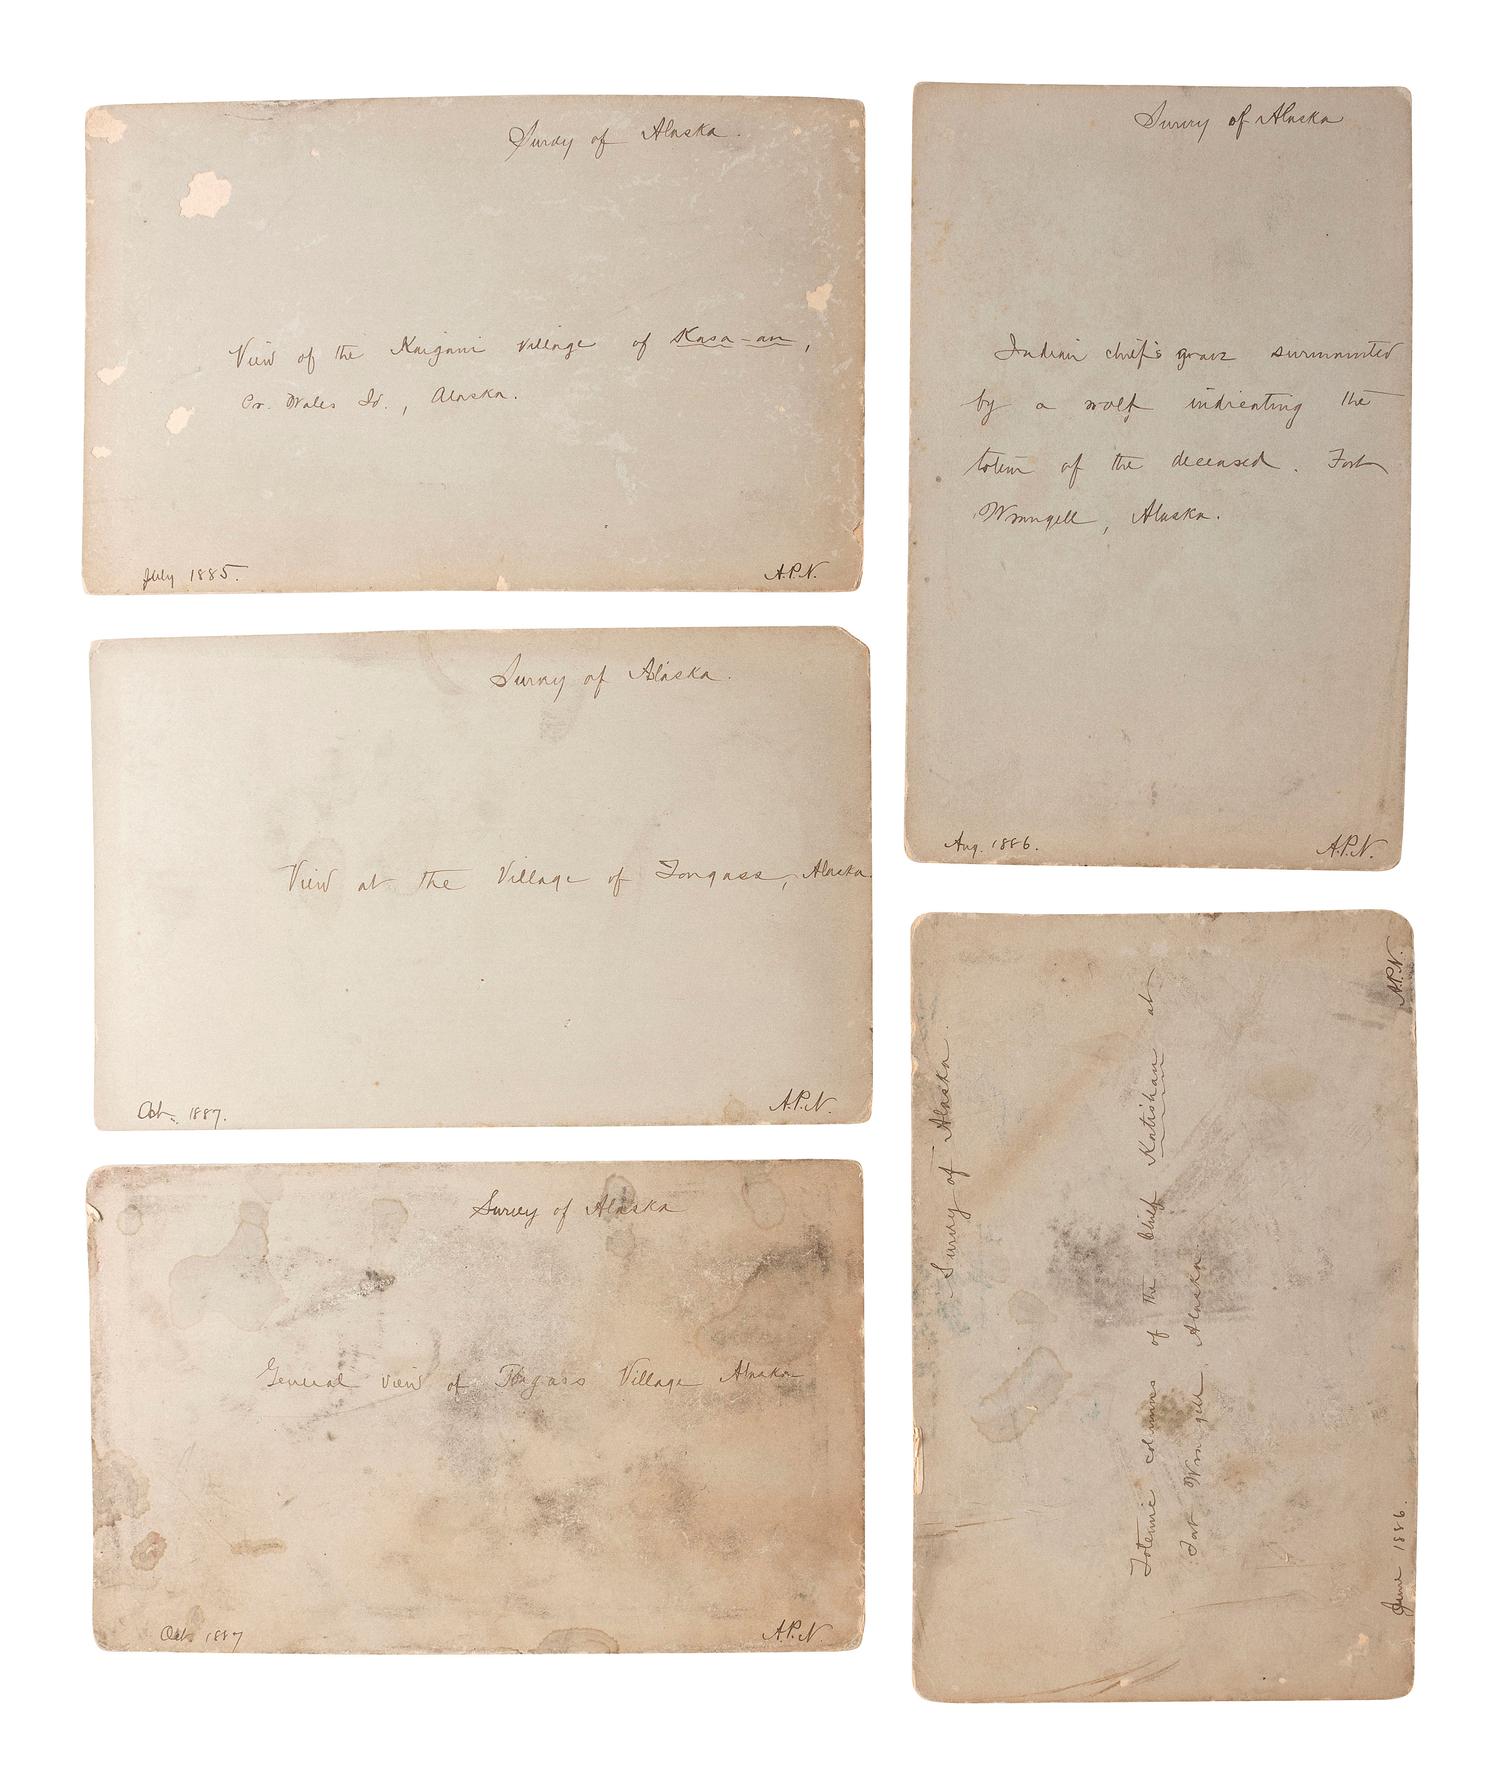 Survey of Alaska.
View of the Kaigani village of Kasa-an,
Pr. Wales Id., Alaska.
July 1885.
A.P.N.
Survey of Alaska.
View at the Village of Tongass, Alaska
Oct. 1887.
A.P.N.
Survey of Alaska
General view of Tongass Village Alaska
Oct. 1887
A.P.N.
Survey of Alaska
Indian chief's grave surmounted
by a wolf indicating the
totem of the deceased. Fort
Wrangell, Alaska.
Aug. 1886.
A.P.N.
Survey of Alaska.
Totemic columns of the Chief Katishan at
Fort Wrangell Alaska
June 1886.
A.P.N.